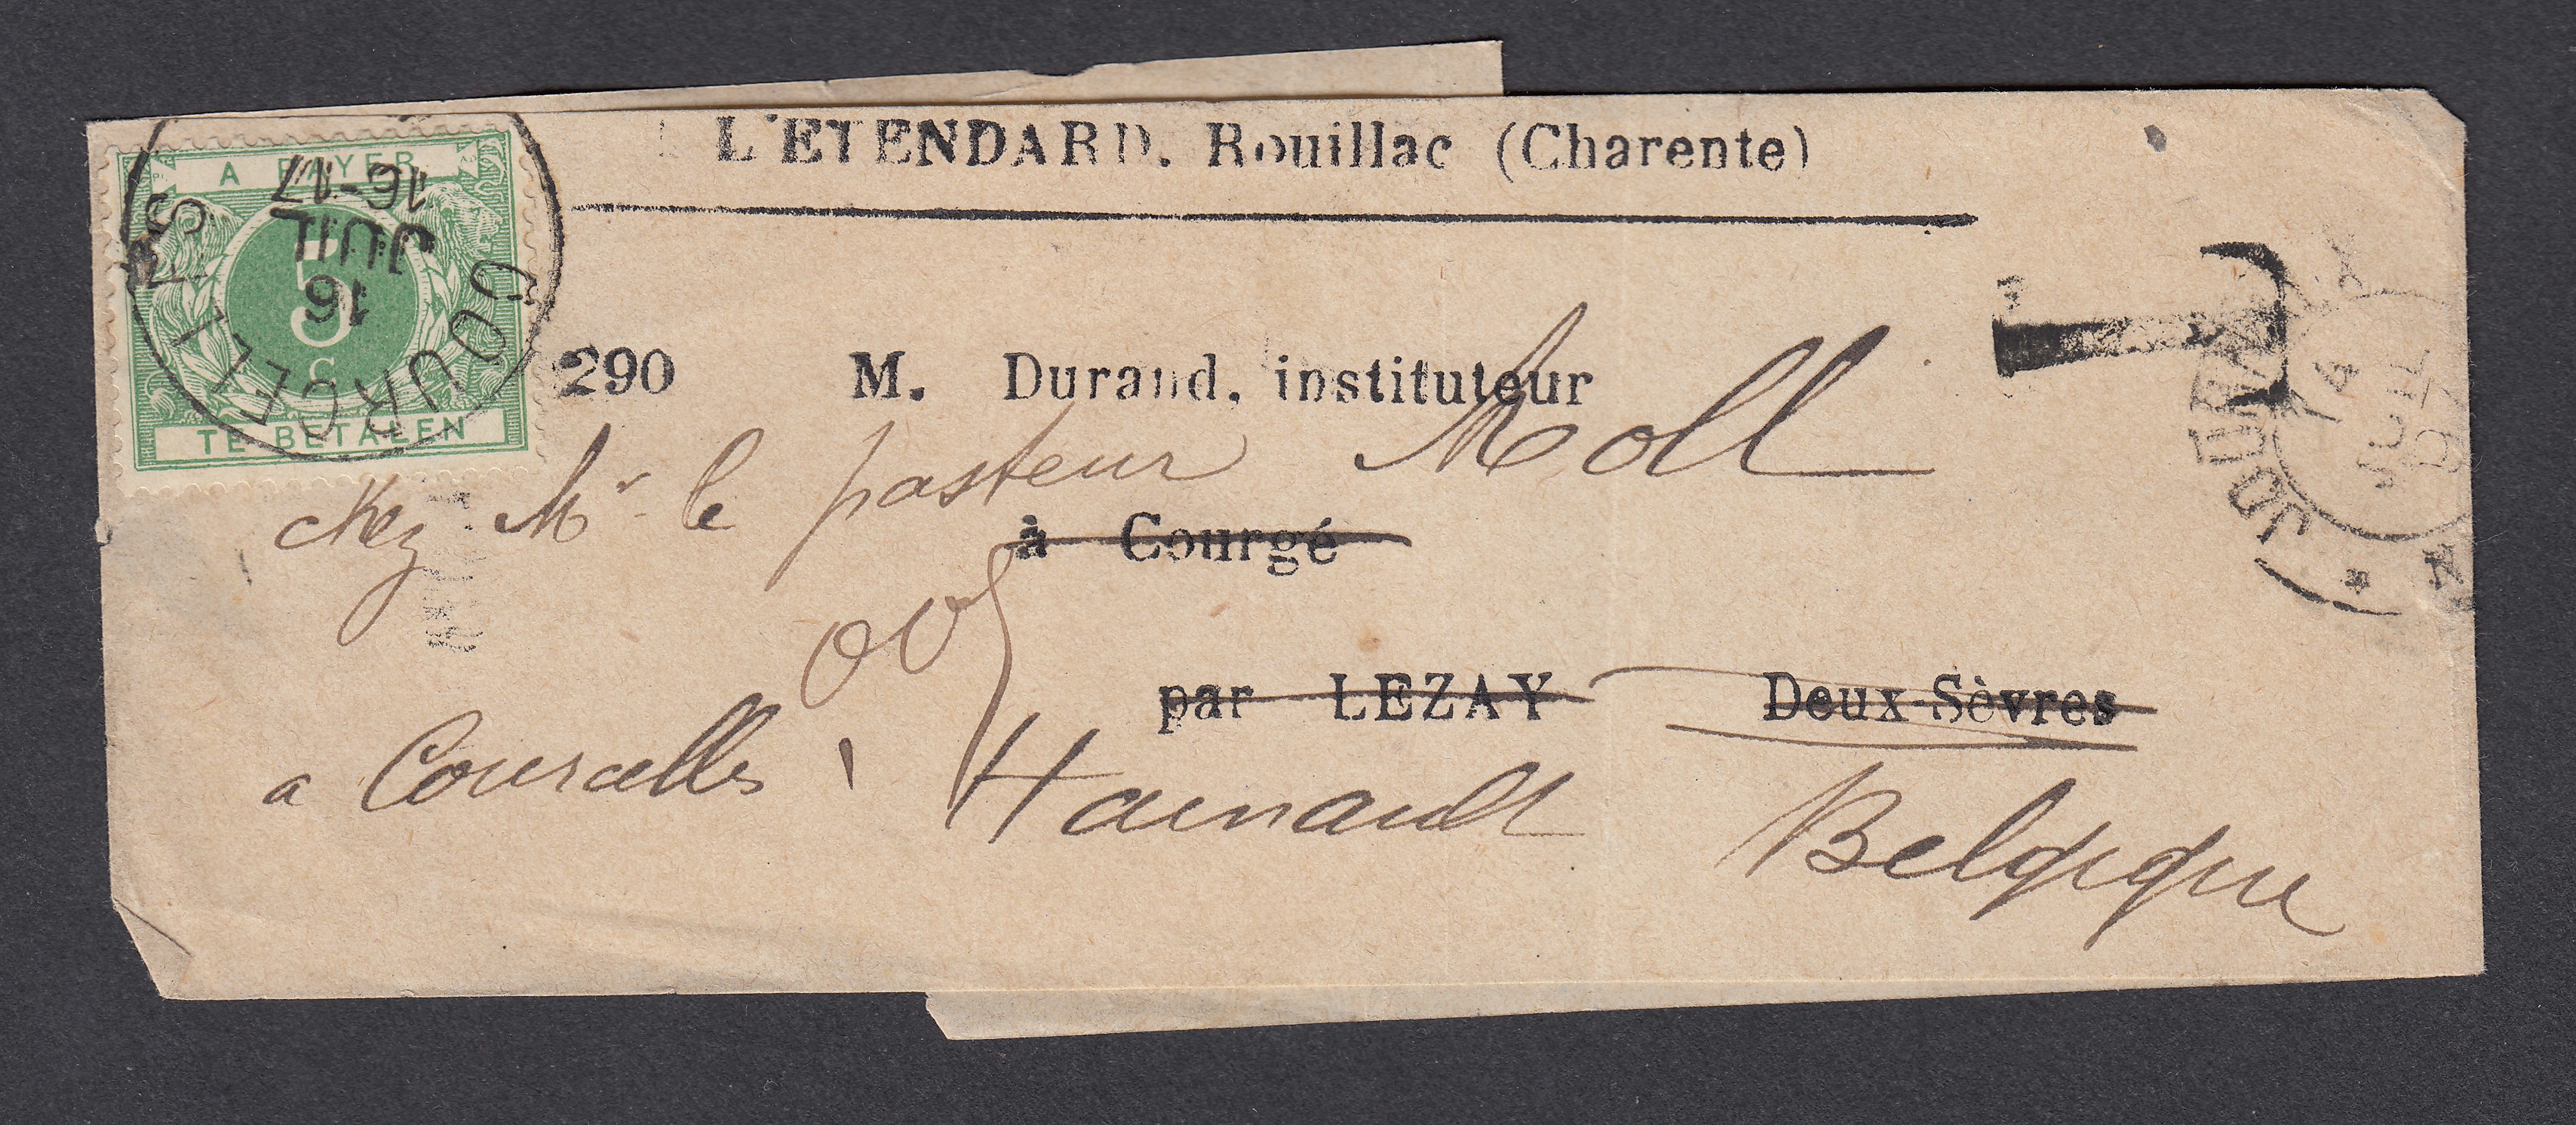 L'ETENDARD. Rouillac (Charente)
A PAYER
5
C
TE BETALEN
COURCELLES
16
JUIL
16-17
T
JOURNAUX
14
JUIL
97
290 M. Durand, instituteur
chez Mr le pasteur Moll
à Courgé
par LEZAY Deux-Sèvres
a Courcelles, Hainault
Belgique